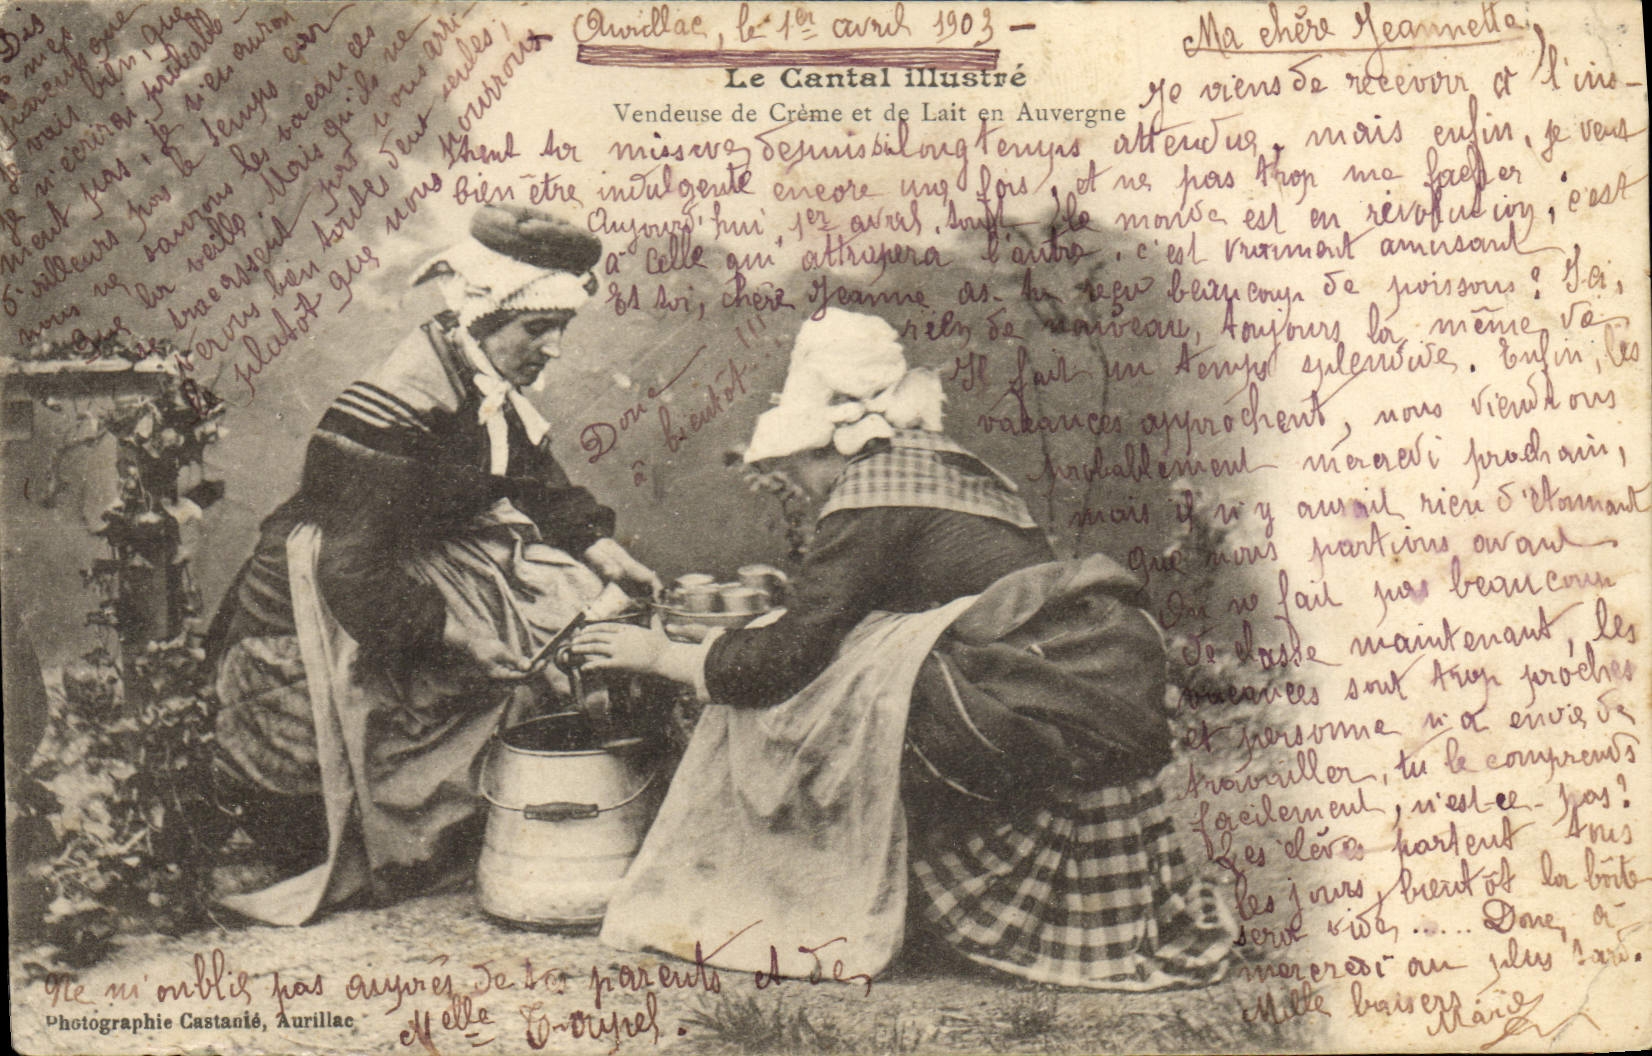 Aurillac, le 1er avril 1903 -
Le Cantal illustré
Vendeuse de Crème et de Lait en Auvergne
Ma chère Jeannette,
Je viens de recevoir à l'ins-
tant ta missive, depuis si longtemps attendue, mais enfin, je veux
bien être indulgente encore une fois, et ne pas trop me fâcher.
Aujourd'hui, 1er avril, tout le monde est en révolution, c'est
à celle qui attrapera l'autre, c'est vraiment amusant.
Et toi, chère Jeanne as-tu reçu beaucoup de poissons? Ici,
rien de nouveau, toujours la même vie
Il fait un temps splendide. Enfin, les
vacances approchent, nous viendrons
probablement mercredi prochain,
mais il n'y aurait rien d'étonnant
que nous partions avant
On ne fait pas beaucoup
de classe maintenant, les
vacances sont trop proches
et personne n'a envie de
travailler, tu le comprends
facilement, n'est-ce-pas?
Les élèves partent tous
les jours, bientôt la boîte
sera vide...... Donc, à
mercredi au plus tard.
Mille baisers
Marie
Dis
à
parents que
je vais bien, que
je n'écrirai probable
ment pas, je n'en aurai
d'ailleurs pas le temps car
nous ne saurons les vacances
que la veille. Mais qu'ils ne
se tracassent pas nous arri-
verons bien toutes deux seules,
le plutôt que nous pourrons
Donc
à bientôt!!!
Ne m'oublie pas auprès de tes parents et de
Melle
Photographie Castanié, Aurillac